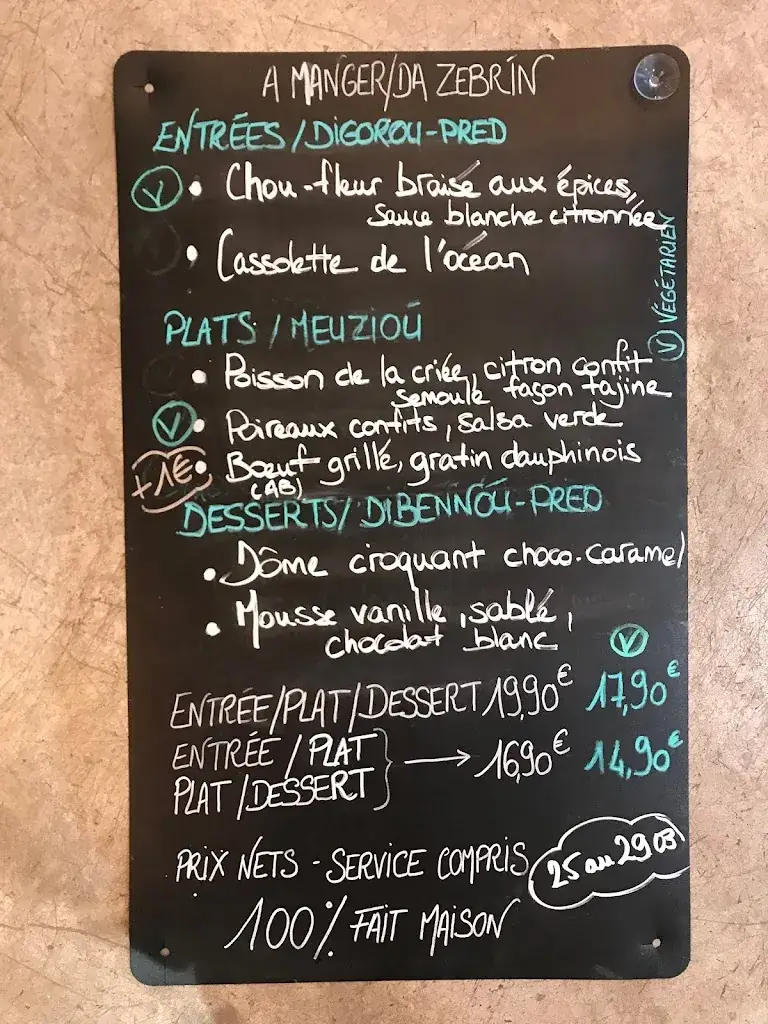 A MANGER/DA ZEBRIN
ENTRÉES/DIGOROU-PRED
V • Chou-fleur braisé aux épices,
sauce blanche citronnée
• Cassolette de l'océan
V VÉGÉTARIEN
PLATS/MEUZIOÚ
• Poisson de la criée, citron confit
semoule façon tajine
V • Poireaux confits, salsa verde
+1€ • Bœuf grillé, gratin dauphinois
(AB)
DESSERTS/DIBENNOÚ-PRED
• Dôme croquant choco-caramel
• Mousse vanille, sablé,
chocolat blanc
V
ENTRÉE/PLAT/DESSERT 19,90€ 17,90€
ENTRÉE/PLAT
PLAT/DESSERT → 16,90€ 14,90€
PRIX NETS - SERVICE COMPRIS
25 au 29 03
100% FAIT MAISON